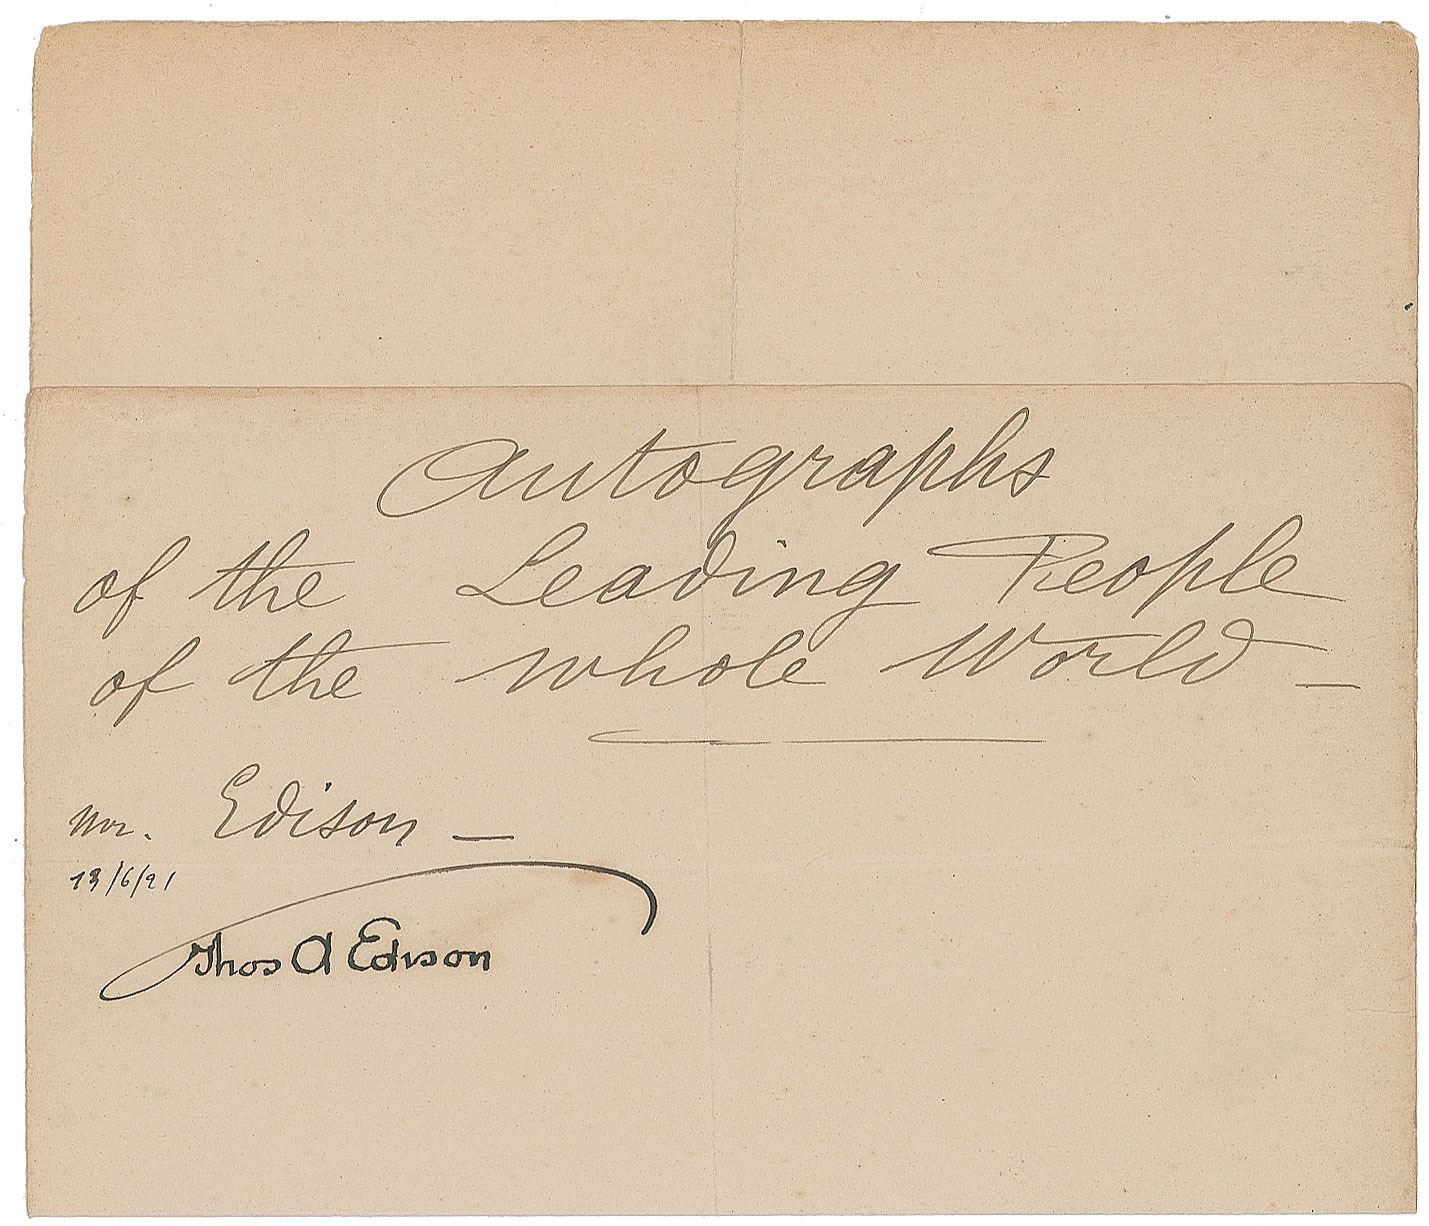 Autographs
of the Leading People
of the whole World —
Mr. Edison —
13/6/21
Thos A Edison